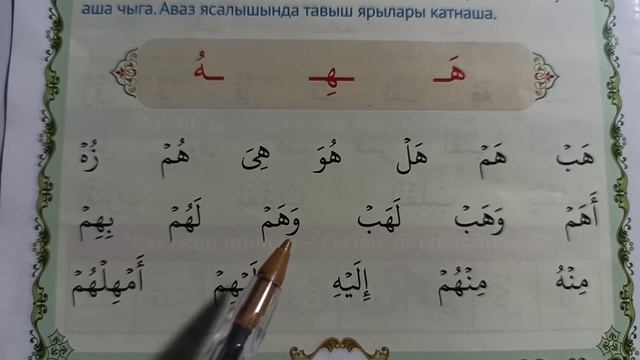 аша чыга. Аваз ясалышында тавыш ярылары катнаша.
هَـ ـهِـ ـهُ
هَبْ هَمْ هَلْ هُوَ هِىَ هُمْ زُهْ
أَهَمْ وَهَبْ لَهَبْ وَهَمْ لَهُمْ بِهِمْ
مِنْهُ مِنْهُمْ إِلَيْهِ أَمْهِلْهُمْ